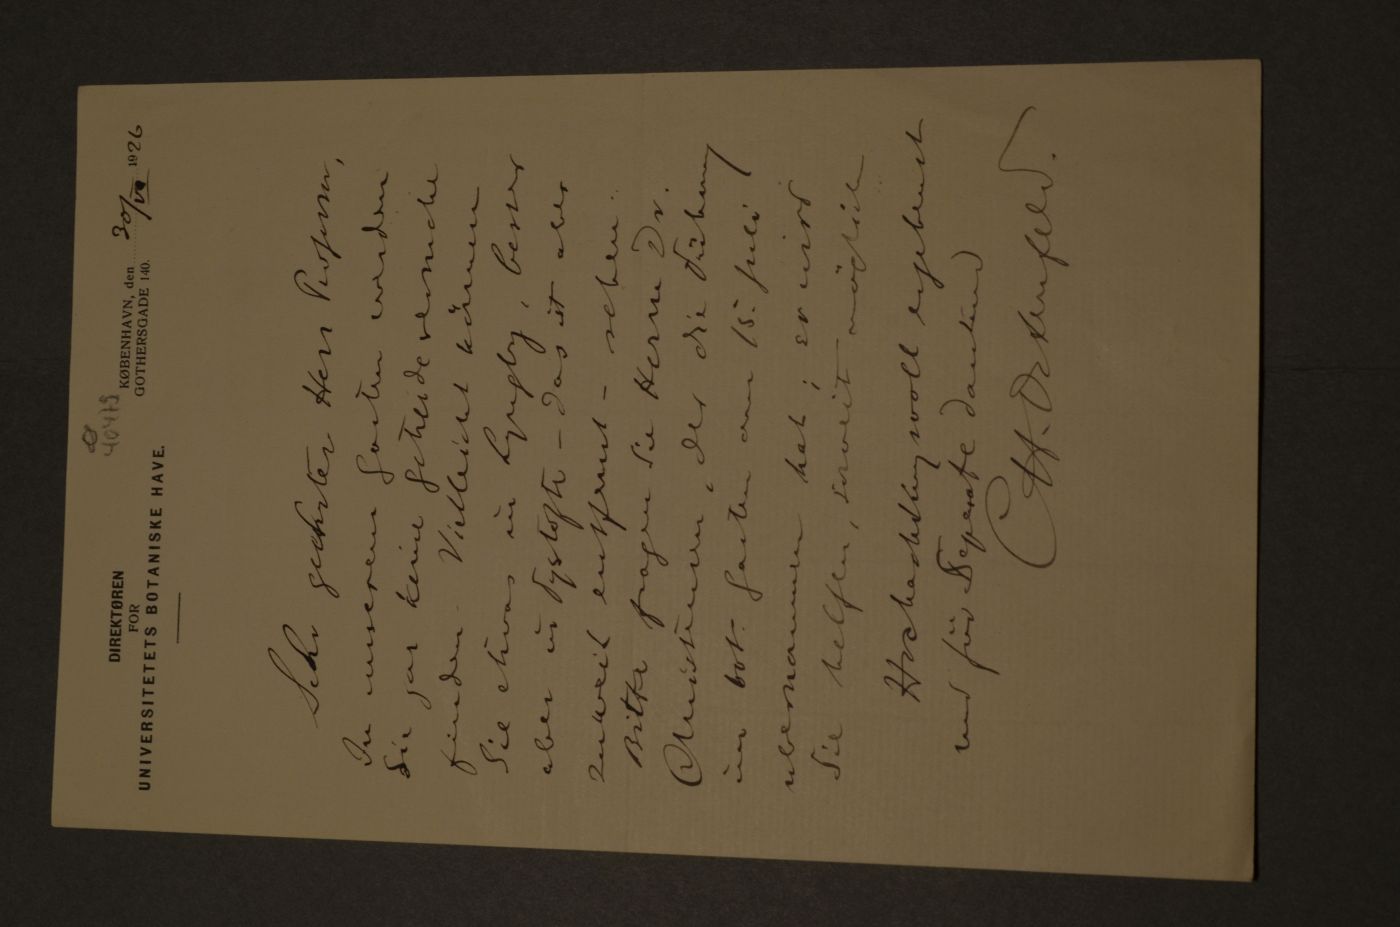 DIREKTØREN
FOR
UNIVERSITETS BOTANISKE HAVE.
40479
KØBENHAVN, den 30/VI 1926
GOTHERSGADE 140.
Sehr geehrter Herr Professor,
In unserem Garten werden
Sie gar keine Getreideversuche
finden. Vielleicht können
Sie etwas in Lyngby, besser
aber in Tystofte – das ist aber
zu weit entfernt – sehen.
Bitte fragen Sie Herrn Dr.
Christensen, der die Führung
im bot. Garten am 15. Juli
übernommen hat; er wird
Sie helfen, soweit möglich
Hochachtungsvoll ergebenst
und für Separate dankend
C. H. Ostenfeld.